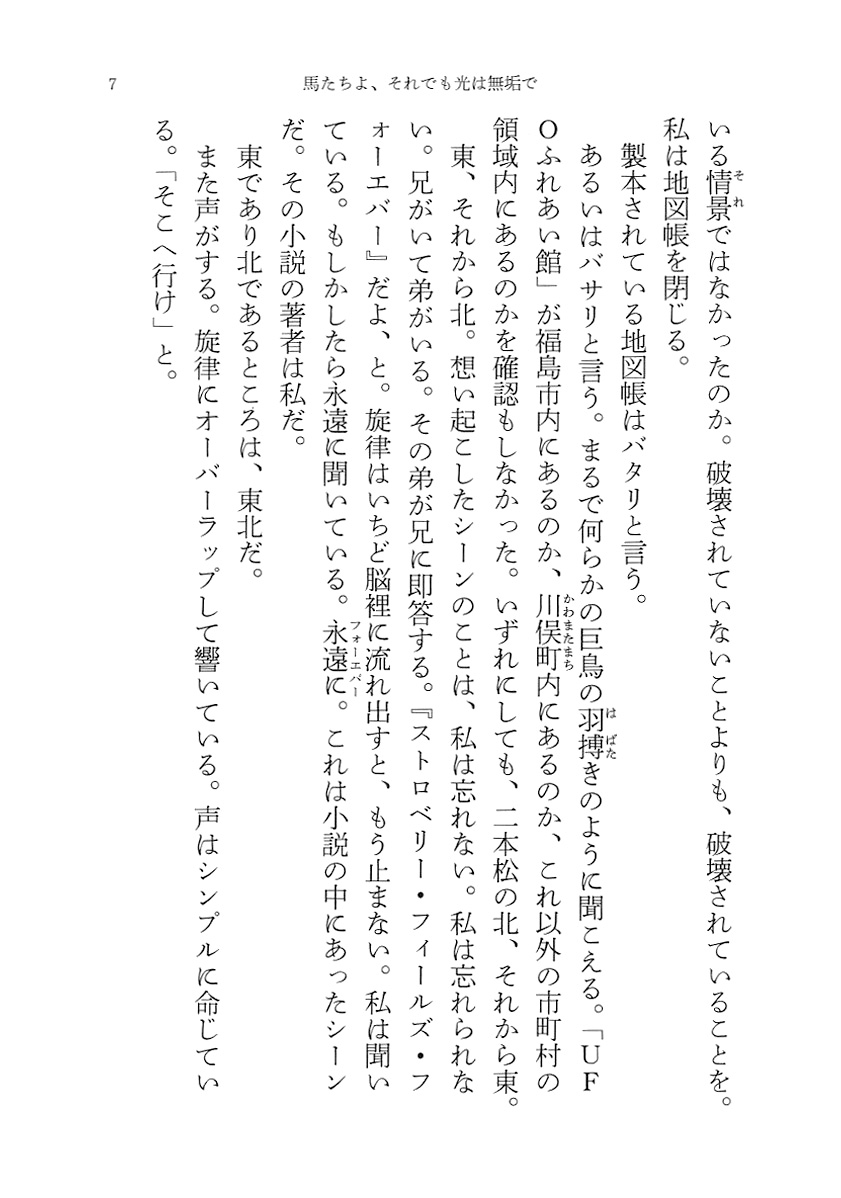 7
馬たちよ、それでも光は無垢で
いる情景ではなかったのか。破壊されていないことよりも、破壊されていることを。
それ
私は地図帳を閉じる。
製本されている地図帳はバタリと言う。
あるいはバサリと言う。まるで何らかの巨鳥の羽搏きのように聞こえる。「UF
はばた
Oふれあい館」が福島市内にあるのか、川俣町内にあるのか、これ以外の市町村の
かわまたまち
領域内にあるのかを確認もしなかった。いずれにしても、二本松の北、それから東。
東、それから北。想い起こしたシーンのことは、私は忘れない。私は忘れられな
い。兄がいて弟がいる。その弟が兄に即答する。『ストロベリー・フィールズ・フ
ォーエバー』だよ、と。旋律はいちど脳裡に流れ出すと、もう止まない。私は聞い
ている。もしかしたら永遠に聞いている。永遠に。これは小説の中にあったシーン
フォーエバー
だ。その小説の著者は私だ。
東であり北であるところは、東北だ。
また声がする。旋律にオーバーラップして響いている。声はシンプルに命じてい
る。「そこへ行け」と。